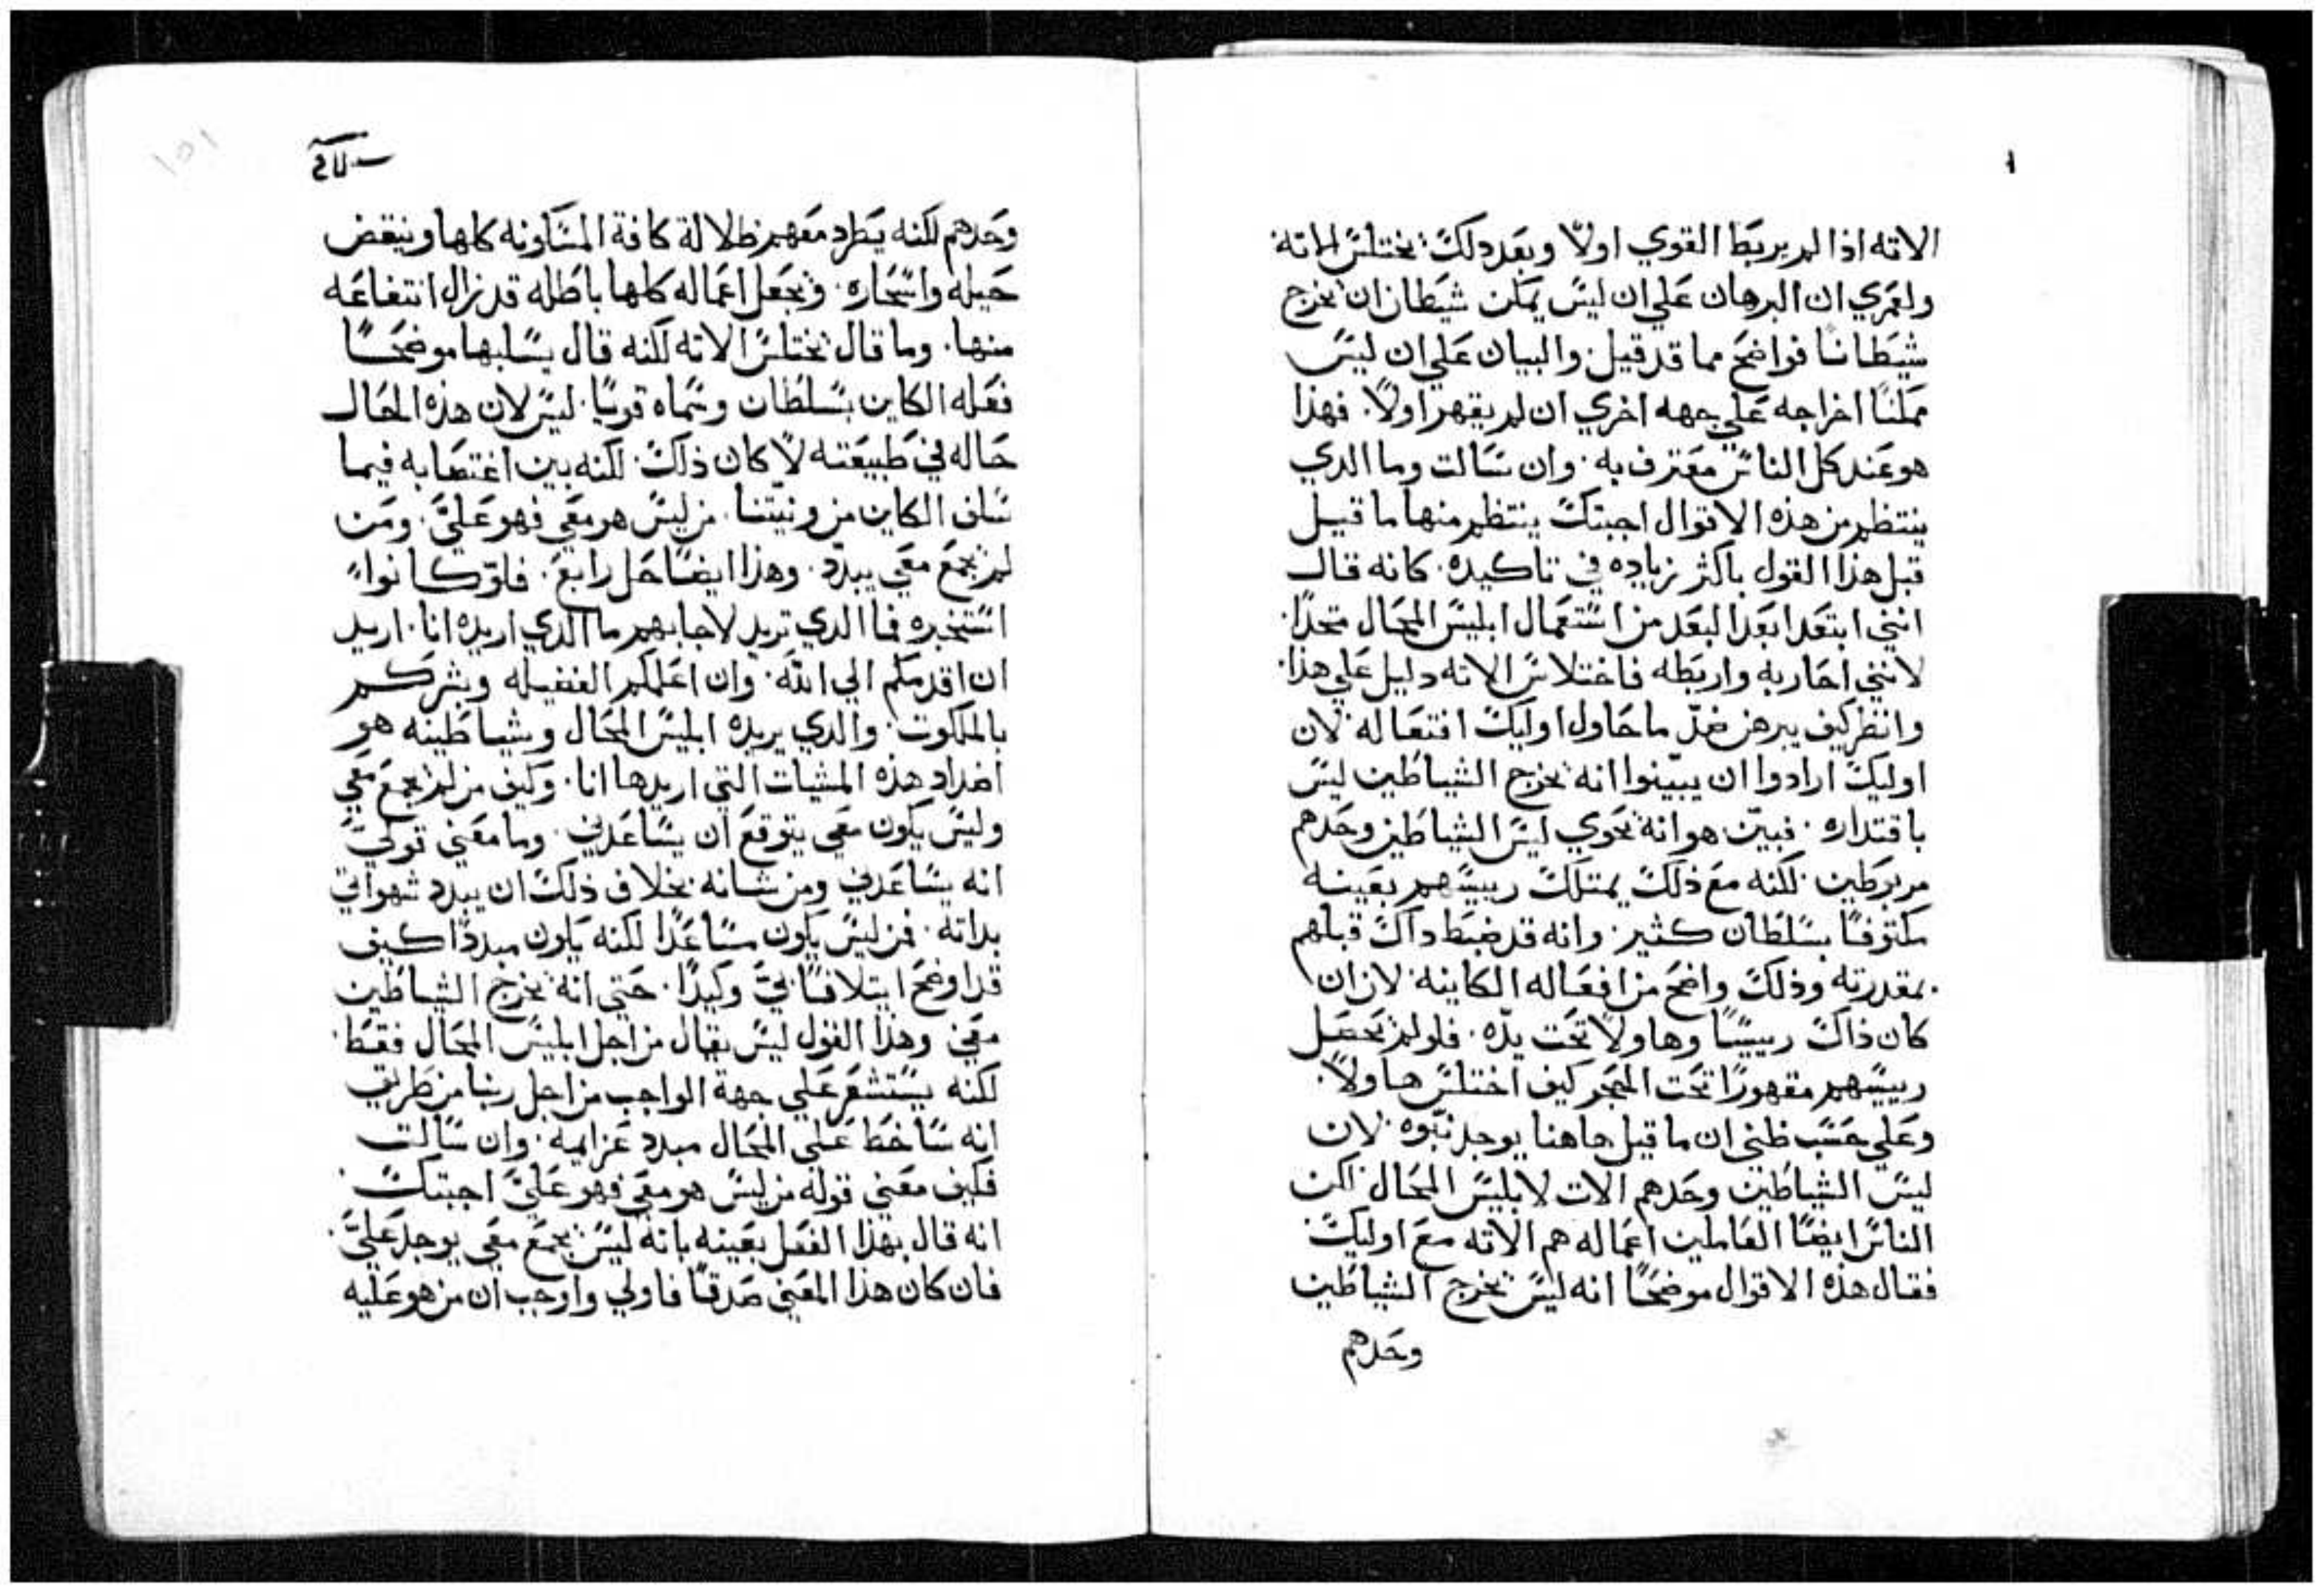 الاته اذا لم يربط القوي اولًا وبعد دلك يختلس الاته
ولعمري ان البرهان علي ان ليس يمكن شيطان ان يخرج
شيطانًا فواضح مما قد قيل. والبيان علي ان ليس
ممكنًا اخراجه علي جهه اخري ان لم يقهر اولًا. فهذا
هو عند كل الناس معترف به. وان سالت وما الدي
ينتظم من هذه الاقوال اجبتك ينتظم منها ما قيل
قبل هذا القول باكثر زياده في تاكيده. كانه قال
انني ابتعد ابعد البعد من استعمال ابليس المحال متحدًا.
لانني احاربه واربطه فاختلاس الاته دليل علي هذا.
وانظر كيف يبرهن ضدّ ما حاول اوليك افتعاله لان
اوليك ارادوا ان يبيّنوا انه يخرج الشياطين ليس
باقتداره. فبيّن هو انه يحوي ليس الشياطين وحدهم
مربوطين. لكنه مع ذلك يمتلك رييسهم بعينه
مكتوفًا بسلطان كثير. وانه قد ضبط داك قبلهم
بمقدرته وذلك واضح من افعاله الكاينه لان ان
كان ذاك رييسًا وهاولا تحت يدّه. فلو لم يحصل
رييسهم مقهورًا تحت الحجر كيف اختلس هاولا.
وعلي حسب ظني ان ما قيل هاهنا يوجد نبّوه لان
ليس الشياطين وحدهم الات لابليس المحال لكن
الناس ايضًا العاملين اعماله هم الاته مع اوليك.
فقال هذه الاقوال موضحًا انه ليس يخرج الشياطين
وحدهم
وحدهم لكنه يطرد معهم ظلالة كافة المساونه كلها وينقض
حيله واسحاره. ويجعل اعماله كلها باطله قد زال انتفاعه
منها. وما قال يختلس الاته لكنه قال يسلبها موضحًا
فعله الكاين بسلطان وسماه قويًا. ليس لان هذه الحال
حاله في طبيعته لا كان ذلك. لكنه بين اغتصابه فيما
سلف الكاين من ونيتنا. من ليس هو معي فهو عليَّ. ومن
لم يجمع معي يبدّد. وهذا ايضًا حل رابع. فلو كانوا
استخبره فما الدي تريد لاجابهم ما الدي اريده انا. اريد
ان اقدمكم الي الله. وان اعلمكم الفضيله وبشركم
بالملكوت. والدي يريده ابليس المحال وشياطينه هو
اضداد هذه المشيات التي اريدها انا. وكيف من لم يجمع معي
وليس يكون معي يتوقع ان يساعدني. وما معني قولي
انه يساعدني ومن شانه بخلاف ذلك ان يبدد شهواتي
بداته. فمن ليس يكون مساعدًا لكنه يكون مبددًا كيف
قد اوضح ايتلافًا بيَّ وكيدًا. حتي انه يخرج الشياطين
معي. وهذا القول ليس يقال من اجل ابليس المحال فقط.
لكنه يستشعر علي جهة الواجب من اجل ربنا من طريق
انه ساخط علي المحال مبدد عزايمه. وان سالت
فكيف معني قوله من ليس هو معي فهو عليَّ اجبتك.
انه قال بهذا الفعل بعينه بانه ليس يجمع معي يوجد عليَّ.
فان كان هذا المعني صدقًا فاولي واوجب ان من هو عليه